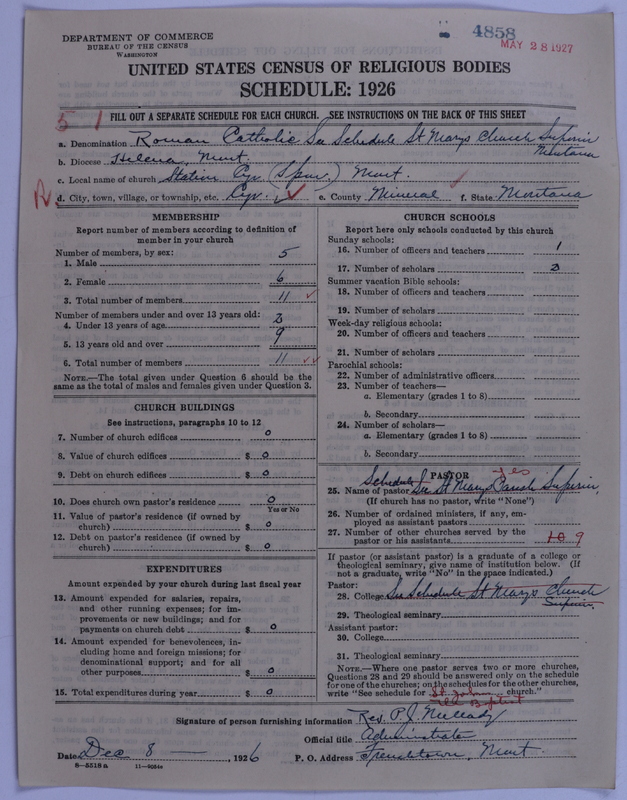 4858
MAY 28 1927
DEPARTMENT OF COMMERCE
BUREAU OF THE CENSUS
WASHINGTON
UNITED STATES CENSUS OF RELIGIOUS BODIES
SCHEDULE: 1926
5 1
FILL OUT A SEPARATE SCHEDULE FOR EACH CHURCH. SEE INSTRUCTIONS ON THE BACK OF THIS SHEET
a. Denomination Roman Catholic See Schedule St Marys Church Superior Montana
b. Diocese Helena, Mont.
c. Local name of church Station Cyr (Spur.) Mont.
R d. City, town, village, or township, etc. Cyr. e. County Mineral f. State Montana
MEMBERSHIP
Report number of members according to definition of member in your church
Number of members, by sex:
1. Male 5
2. Female 6
3. Total number of members 11
Number of members under and over 13 years old:
4. Under 13 years of age
5. 13 years old and over 9
6. Total number of members 11
NOTE.—The total given under Question 6 should be the same as the total of males and females given under Question 3.
CHURCH BUILDINGS
See instructions, paragraphs 10 to 12
7. Number of church edifices 0
8. Value of church edifices $ 0
9. Debt on church edifices $ 0
10. Does church own pastor's residence 0
Yes or No
11. Value of pastor's residence (if owned by church) $ 0
12. Debt on pastor's residence (if owned by church) $ 0
EXPENDITURES
Amount expended by your church during last fiscal year
13. Amount expended for salaries, repairs, and other running expenses; for improvements or new buildings; and for payments on church debt $ 0
14. Amount expended for benevolences, including home and foreign missions; for denominational support; and for all other purposes $ 0
15. Total expenditures during year $ 0
CHURCH SCHOOLS
Report here only schools conducted by this church
Sunday schools:
16. Number of officers and teachers 1
17. Number of scholars
Summer vacation Bible schools:
18. Number of officers and teachers
19. Number of scholars
Week-day religious schools:
20. Number of officers and teachers
21. Number of scholars
Parochial schools:
22. Number of administrative officers
23. Number of teachers—
a. Elementary (grades 1 to 8)
b. Secondary
24. Number of scholars—
a. Elementary (grades 1 to 8)
b. Secondary
PASTOR yes
25. Name of pastor Schedule See St Marys Church Superior,
(If church has no pastor, write "None")
26. Number of ordained ministers, if any, employed as assistant pastors
27. Number of other churches served by the pastor or his assistants 10 9
If pastor (or assistant pastor) is a graduate of a college or theological seminary, give name of institution below. (If not a graduate, write "No" in the space indicated.)
Pastor:
28. College See Schedule St Marys Church Superior.
29. Theological seminary
Assistant pastor:
30. College
31. Theological seminary
NOTE.—Where one pastor serves two or more churches, Questions 28 and 29 should be answered only on the schedule for one of the churches; on the schedules for the other churches, write "See schedule for St. John church."
the Baptist
Signature of person furnishing information Rev. P. J.
Official title Administrator
Date Dec 8, 1926 P. O. Address Frenchtown, Mont.
8-5518 a